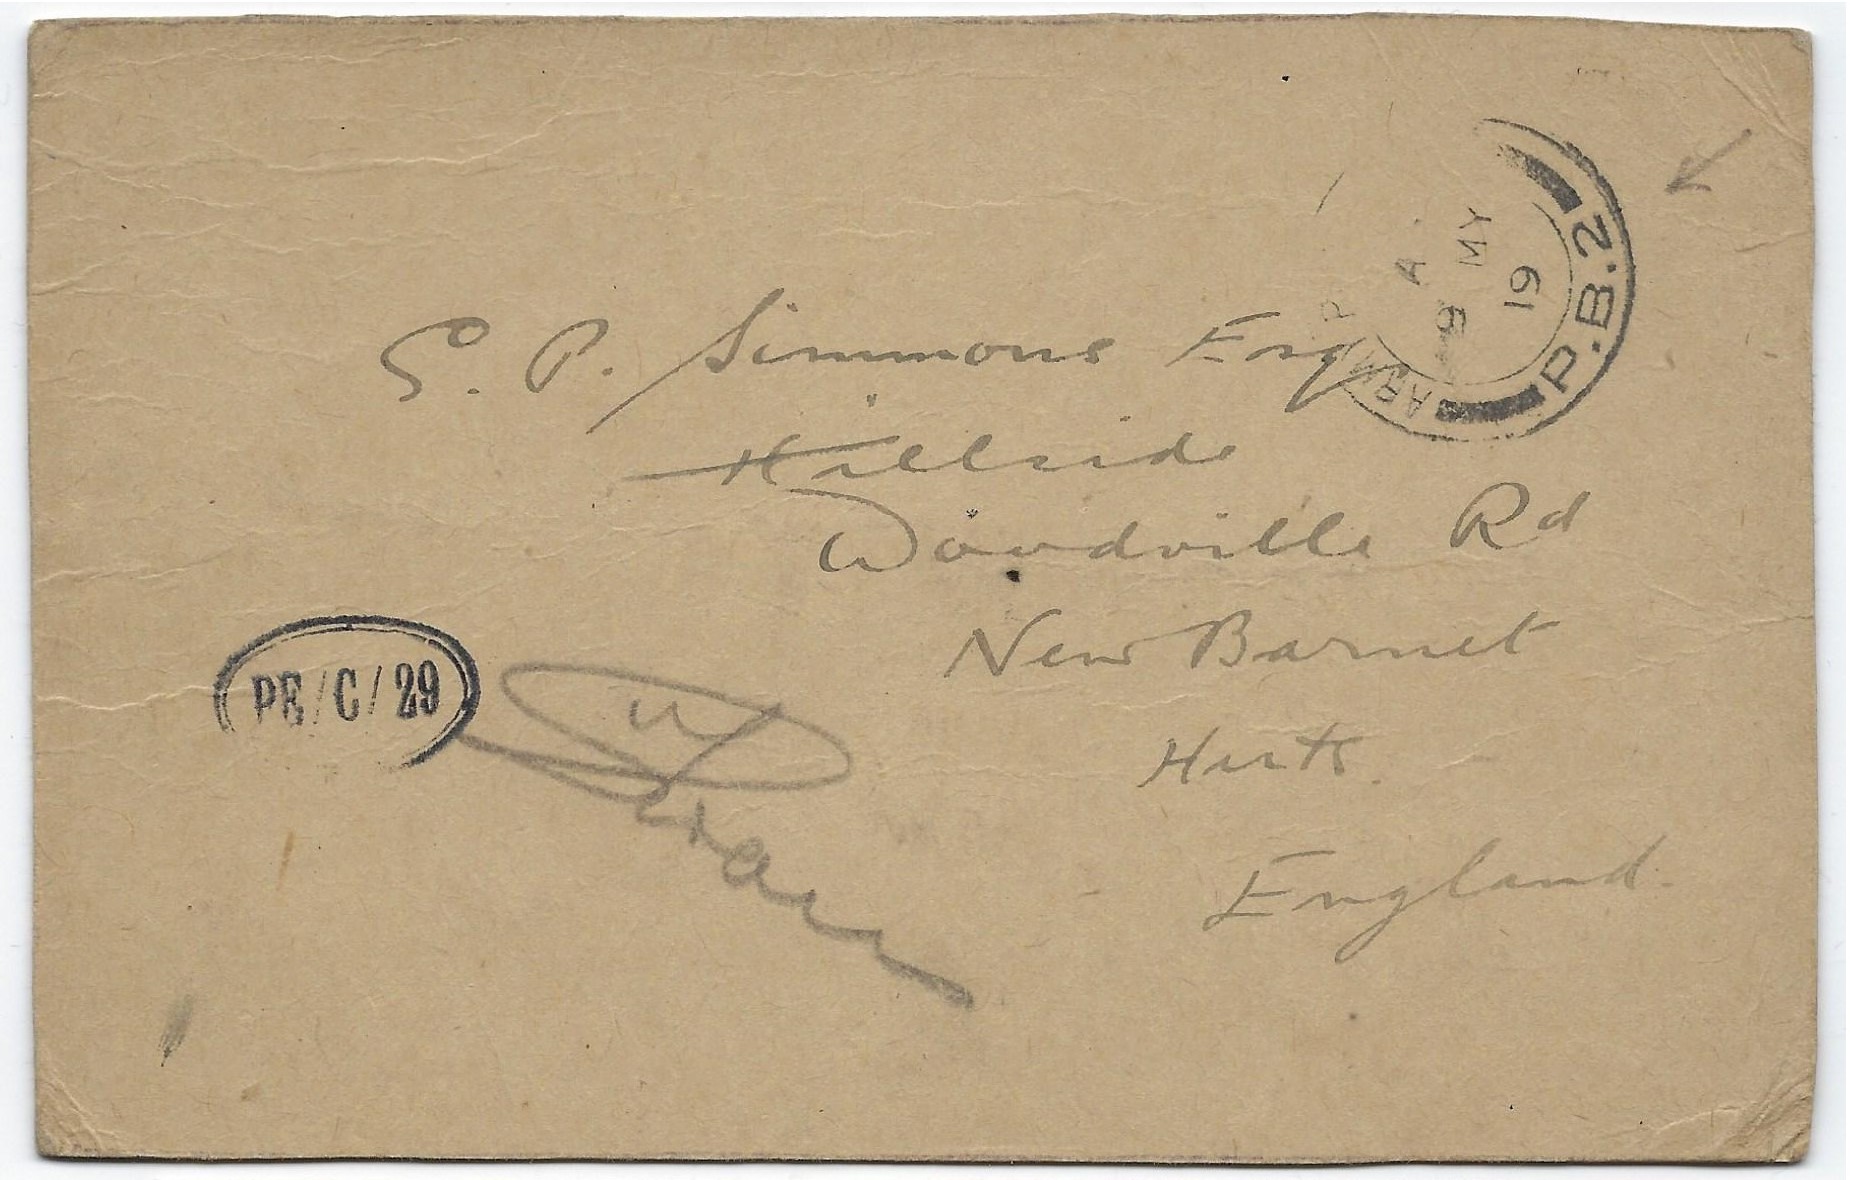 ARMY P
P.B.2
A
9 MY
19
E. P. Simmons Esq
Hillside
Woodville Rd
New Barnet
Herts.
England.
PE/C/29